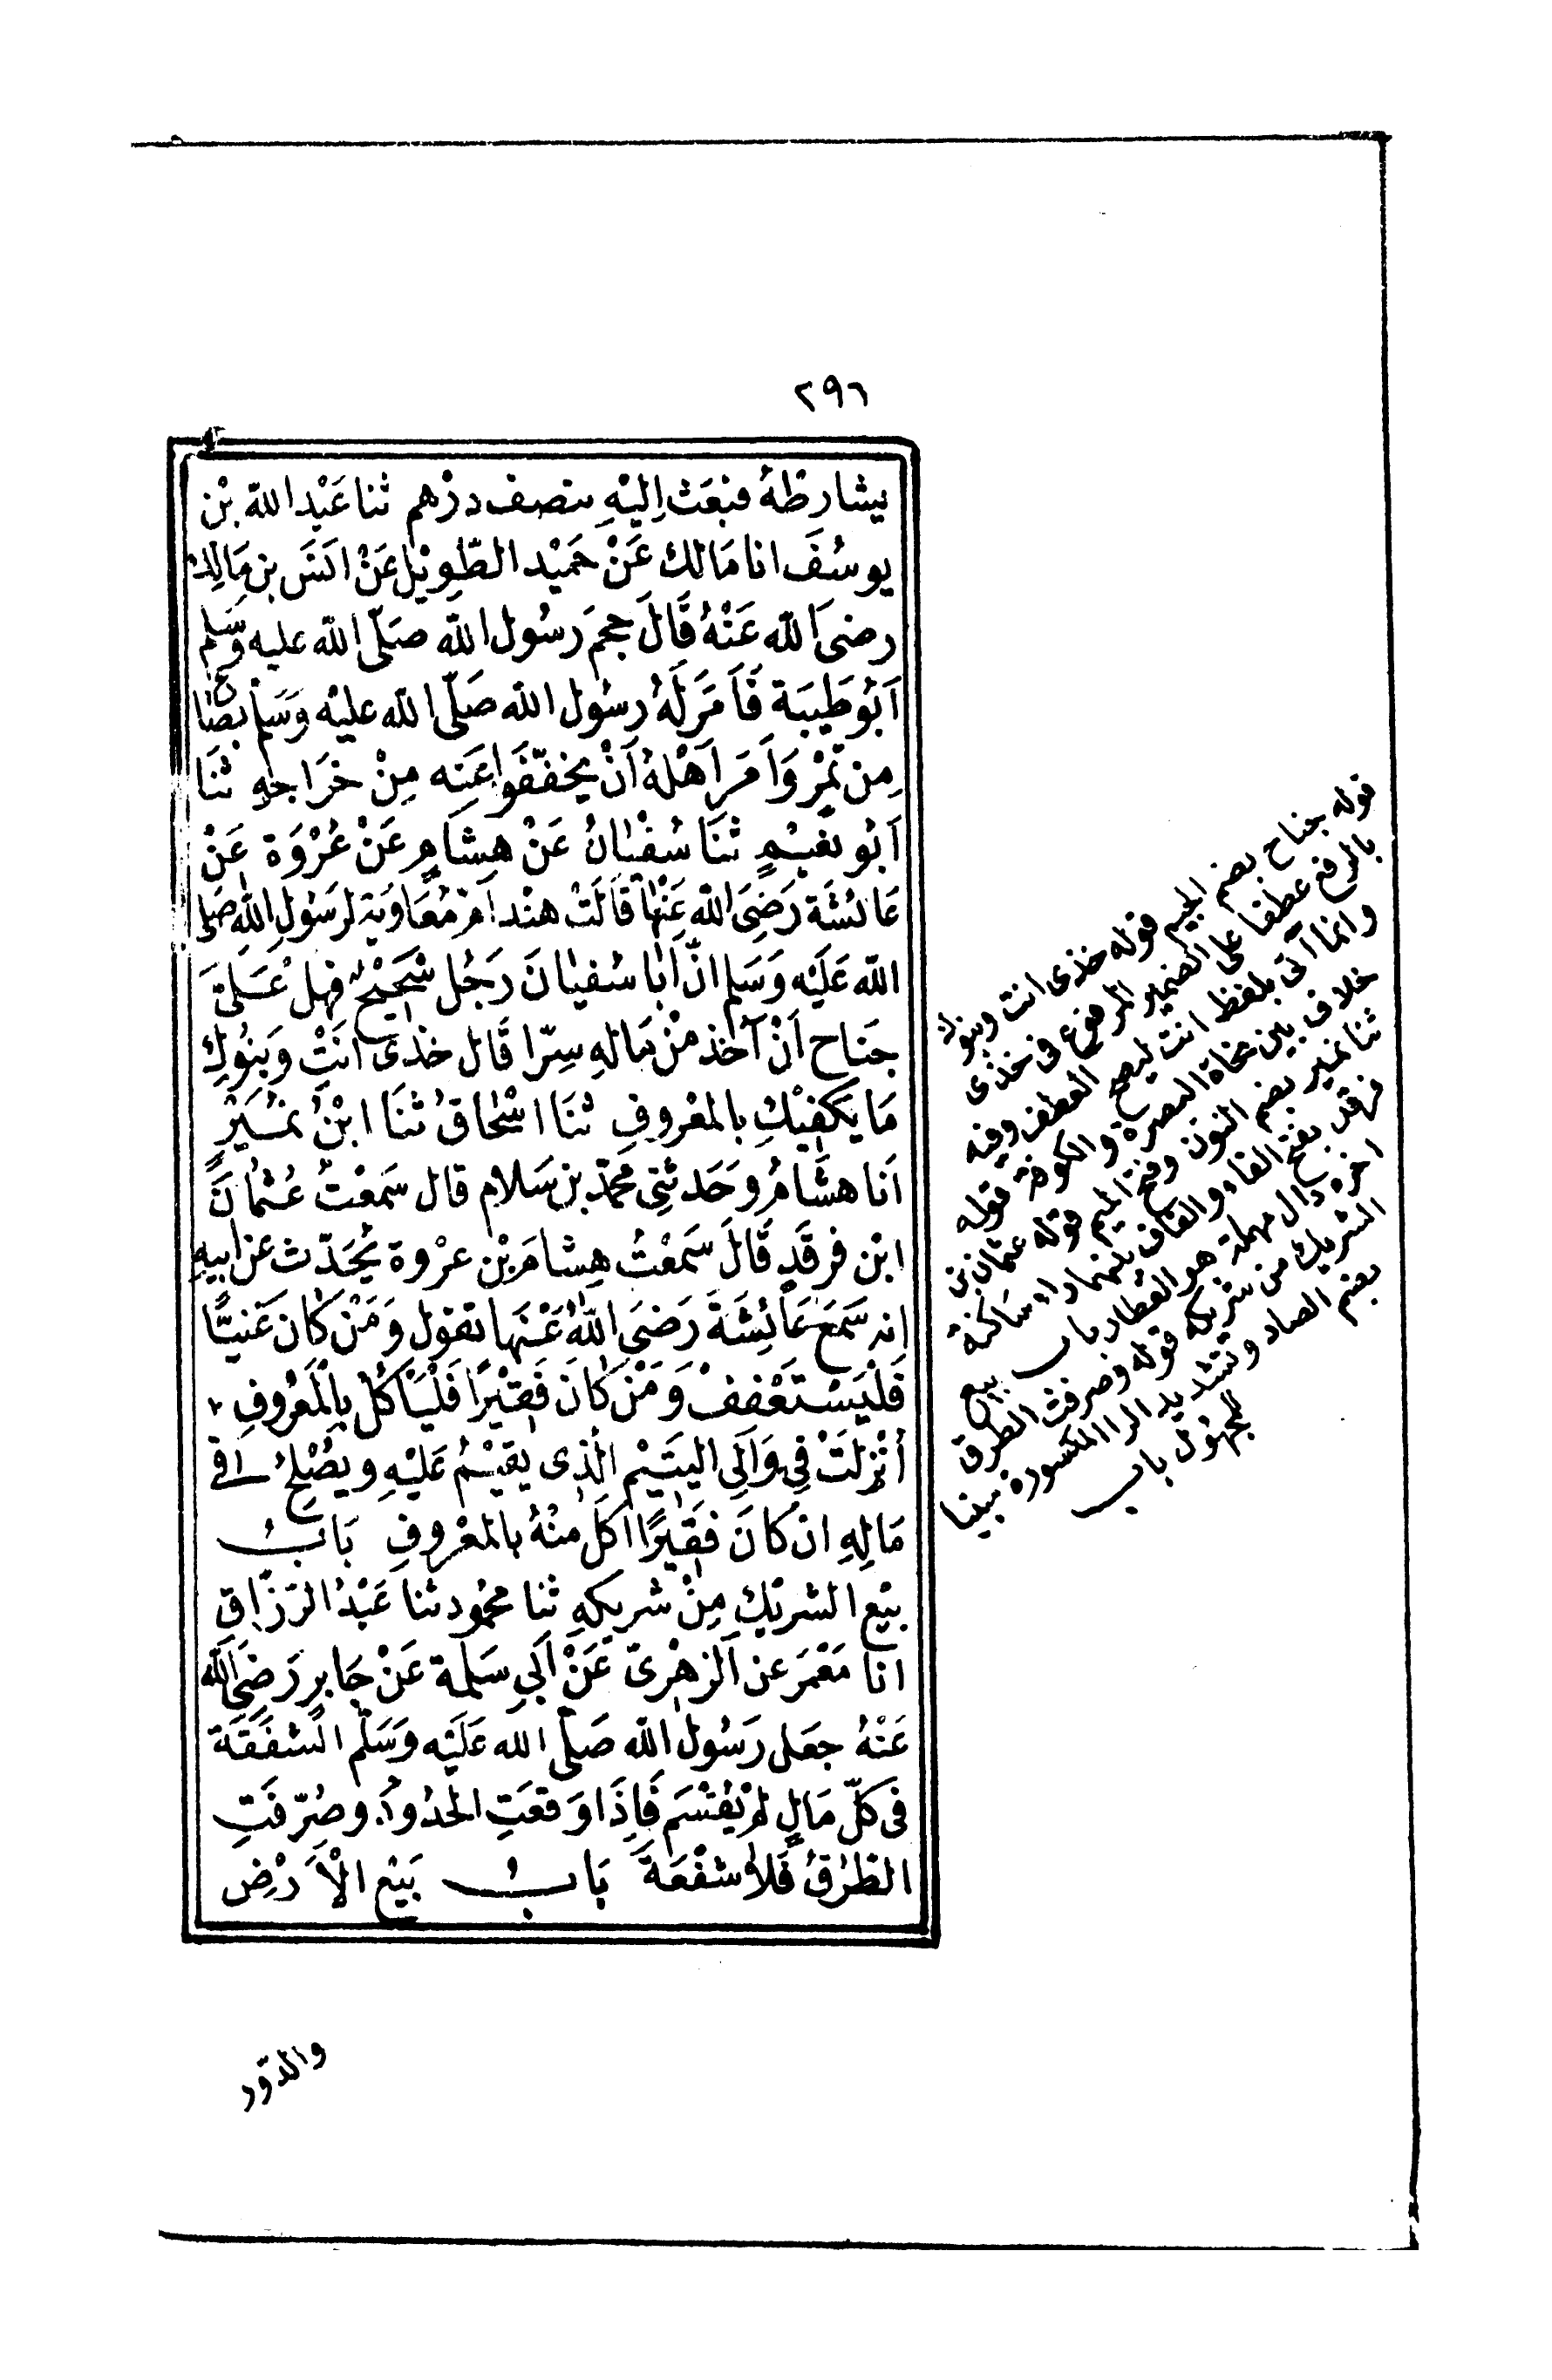 ٢٩٦
يشارطْهُ فبَعَث اِليْهِ بنصف درْهم ثنا عَبْد الله بْن
يوسُفَ انا مَالك عَنْ حَمَيْد الطّوِيْل عَنْ انَسَ بن مَالِك
رضىَ الله عَنْهُ قَالَ حجمَ رَسُول الله صَلّى الله عليه وَسَلم
اَبُو طَيبَة فَاَمَرَ لَهُ رسُول الله صَلّى الله عليْه وَسَلم بصَاع
مِن تَمْرٍ وَاَمَرَ اَهْلهُ اَنْ يخفّفَوا عَنه مِنْ خَرَاجهِ ثنَا
اَبُو نعَيْمٍ ثنَا سُفْيَانُ عَنْ هِشامٍ عَنْ عُرْوَة عَنْ
عَائشَة رَضِىَ الله عَنْهَا قَالَتْ هنْد امّ مُعَاوَية لرَسُولِ اللهِ صَلى
الله عَلَيْه وَسَلم انّ اَبَا سُفيَانَ رَجُل شَحِيْحٌ فهلْ عَلىّ
جنَاح اَنْ آخذ منْ مَالهِ سِرّا قَال خذى انتِ وَبنُوكِ
مَا يَكفِيْكِ بالمعْروفِ ثنَا اسْحَاقُ ثنَا ابْنُ نمَيْرٍ
اَنا هشَامُ وحَدثنِى محمّد بن سَلام قال سَمعْتُ عُثمَانَ
ابْن فرقَدٍ قَالَ سَمعْتُ هِشامَ بْن عرْوة يُحَدّث عن ابيهِ
انه سَمعَ عَائِشَةَ رَضىَ اللهُ عَنْهَا تقول وَمَنْ كَانَ غَنيًّا
فَلْيَسْتَعْفِفْ وَمَنْ كَانَ فَقِيْرًا فَلْيَأكُل بِالْمَعْروفِ
أنْزِلَتْ فِي وَالِى اليَتَيْم الّذِى يقيْمُ عَليْهِ ويصْلحُ فى
مَالِهِ ان كانَ فقِيْرًا اكَلَ منْهُ بالمعْروفِ بَابُ
بيْع الشريْكِ مِنْ شريكهِ ثنا محمُود ثنا عَبْدُ الرّزّاق
انا مَعْمَر عن الزهْرىّ عَنْ اَبِى سَلمة عَنْ جَابرٍ رَضىَ الله
عَنْهُ جعَل رَسُولُ الله صَلّى الله عَلَيْه وَسَلّم الشفْعَة
فى كلّ مَالٍ لم يُقْسَم فَاِذَا وَقعَتِ الحدُودُ وصُرّفَتِ
الطّرُقُ فَلاَ شفْعَةَ بَابُ بَيْع الْأَرْضِ
قوله جناح بضم الجيم قوله خذى انت وبنوك
بالرفع عطفا على الضمير المرفوع فى خذى
وانما اتى بلفظ انت ليصح العطف وفيه
خلاف بين نحاة البصرة والكوفة قوله
ثنا نمير بضم النون وفتح الميم قوله عثمان بن
فرقد بفتح الفاء والقاف بينهما راء ساكنة
اخره دال مهملة هو العطار باب بيع
الشريك من شريكه قوله وصرفت الطرق
بضم الصاد وتشديد الرا المكسورة مبنيا
للمجهول باب
والدّور